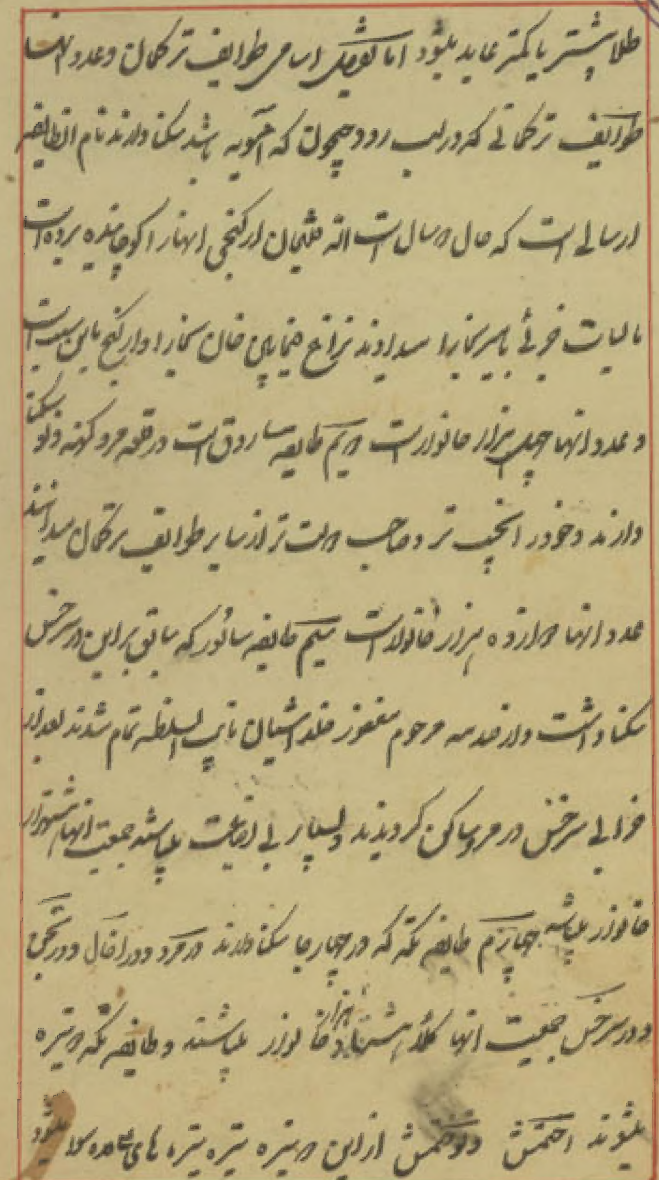 طلا بیشتر یا کمتر عاید میشود اما تفصیل اسامی طوایف ترکمان و عدد انها
طوایف ترکمانی که در لب رود جیحون که آمویه باشد سکنا دارند نام انطایفه
ارسالی است که حال سال است الله قلیخان ارکنجی انها را کوچانیده برده است
مالیات جزئی بامیر بخارا میدادند نزاع فیمابین خان بخارا و ارکنج باین سبب است
و عدد انها چهل هزار خانوار است دویم طایفه ساروق است در قلعه مرو کهنه و نو سکنا
دارند و خود را نجیب تر و صاحب تر از سایر طوایف ترکمان میدانند
عدد انها دوازده هزار خانوار است سیم طایفه سالور که سابق براین در سرخس
سکنا داشت و از صدمه مرحوم مغفور خلد اشیان نایب السلطنه تمام شدند بعد از
خرابی سرخس در مرو ساکن کردیدند و بسیار بی بضاعت میباشند جمعیت انها هزار
خانوار میباشد چهارم طایفه تکه که در چهار جا سکنا دارند در مرو و در اخال و در تجن
و در سرخس جمعیت انها کلاً هشتاد هزار خانوار میباشند و طایفه تکه دو تیره
میشوند اختمش و توختمش از این دو تیره تیره تیره های میشود